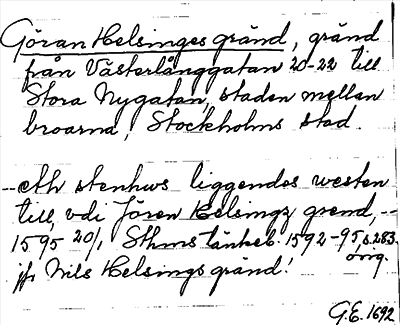 Göran Helsinges gränd, gränd
från Västerlånggatan 20-22 till
Stora Nygatan, staden mellan
broarna, Stockholms stad.
--eth stenhws liggendes westen
till, vdi Jören Helsingz grend, --
1595 20/1 Sthms tänkeb. 1592-95, s. 283.
jfr Nils Helsings gränd! orig.
G.E. 1692